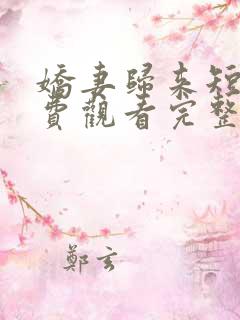 嬌妻歸來短
費觀看完整
鄭玄